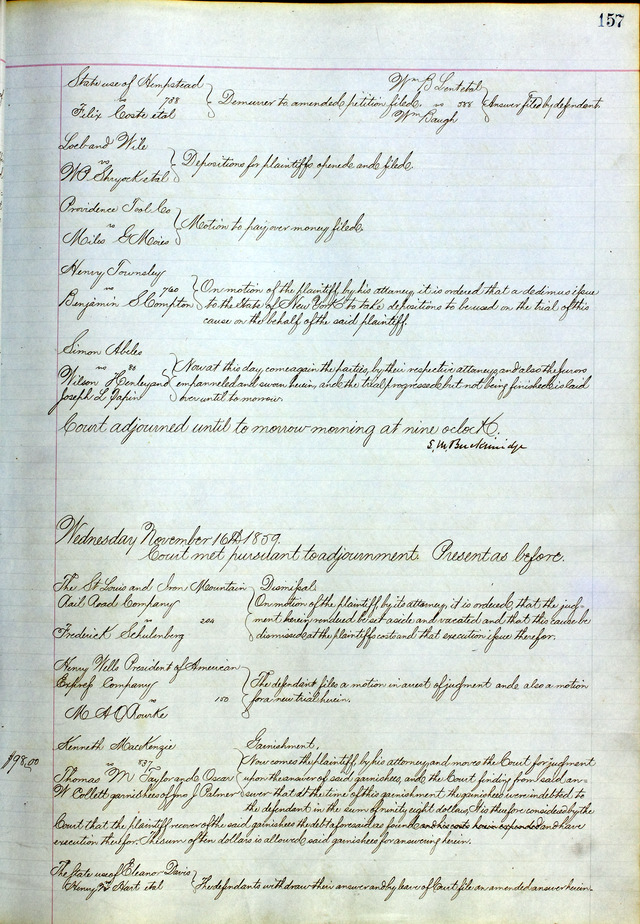 157
State use of Hempstead
vs 788 Demurrer to amended petition filed.
Felix Coste etal
Wm B Lentz etal
vs 588 Answer filed by defendant
Wm Baugh
Loeb and Wile
vs Depositions for plaintiffs opened and filed.
W P Shryock etal
Providence Tool Co
vs Motion to pay over money filed.
Miles G Moies
Henry Townsley
vs 740 On motion of the plaintiff by his attorney, it is ordered that a dedimus issue
Benjamin S Compton to the State of New York to take depositions to be used on the trial of this
cause on the behalf of the said plaintiff.
Simon Abeles
vs 88 Now at this day, come again the parties, by their respective attorneys, and also the jurors
Wilson Henley and empanneled and sworn herein, and the trial progressed but not being finished is laid
Joseph L Papin over until to morrow.
Court adjourned until to morrow morning at nine oclock.
S. M. Breckinridge
Wednesday November 16th 1859.
Court met pursuant to adjournment. Present as before.
The St Louis and Iron Mountain Dismissal
Rail Road Company On motion of the plaintiff by its attorney, it is ordered, that the judg-
vs 204 ment herein rendered be set aside and vacated and that this cause be
Frederick Schulenberg dismissed at the plaintiffs costs and that execution issue therefor.
Henry Wells President of American
Express Company The defendant files a motion in arrest of judgment and also a motion
vs 150 for a new trial herein.
M A O'Rourke
Kenneth MacKenzie Garnishment.
$98,00 vs 837 Now comes the plaintiff by his attorney, and moves the Court for judgment
Thomas M Taylor and Oscar upon the answer of said garnishees, and the Court finding from said an-
W Collett garnishees of Jno J Palmer swer that at the time of this garnishment the garnishees were indebted to
the defendant in the sum of ninety eight dollars, It is therefore considered by the
Court that the plaintiff recover of the said garnishees the debt aforesaid as found and his costs herein expended and have
execution therefor. The sum of ten dollars is allowed said garnishees for answering herein.
The State use of Eleanor Davis
vs The defendants withdraw their answer and by leave of Court file an amended answer herein.
Henry N Hart etal